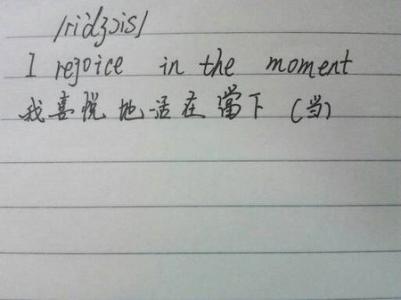 /ridʒɔis/
I rejoice in the moment
我喜悦地活在當下 (当)